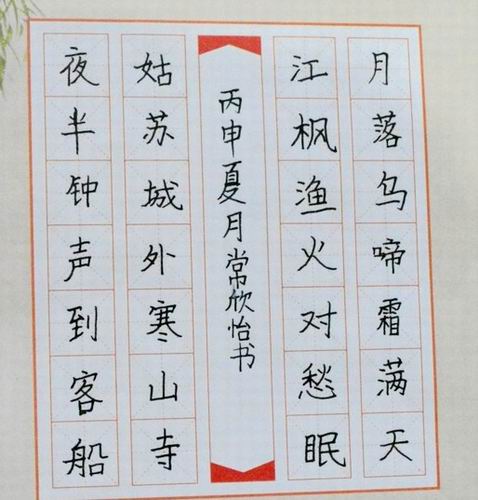 月落乌啼霜满天
江枫渔火对愁眠
丙申夏月常欣怡书
姑苏城外寒山寺
夜半钟声到客船